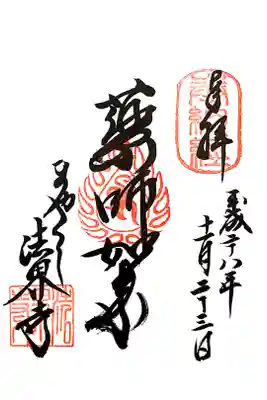 奉拝
平成二十八年
十一月二十三日
薬師如来
ひやくし
法界寺